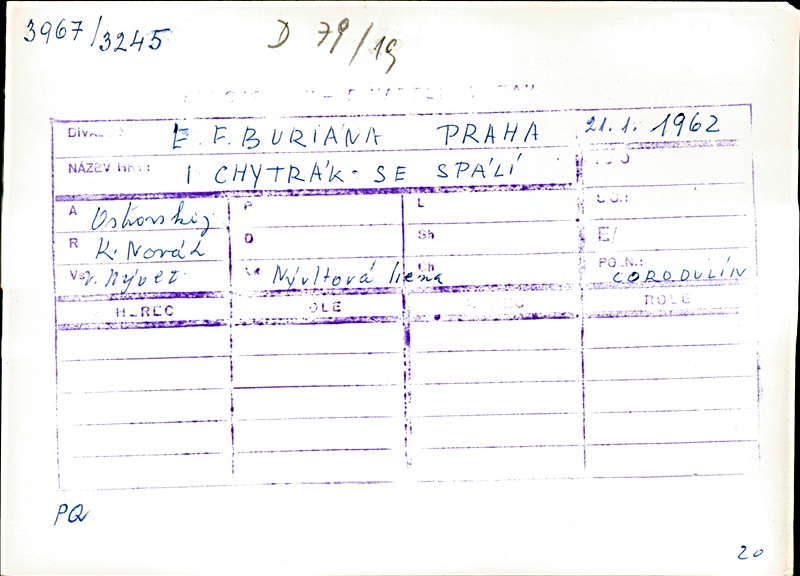 3967/3245
D 79/19
E. F. BURIÁNA PRAHA 21.1. 1962
NÁZEV HRY: I CHYTRÁK SE SPÁLÍ
A Ostrovskij P L
R K. Novák D Sh E/
V. Nývlt Nývltová liena Ch PO.N.: CORODULÍN
HEREC ROLE
PQ
20